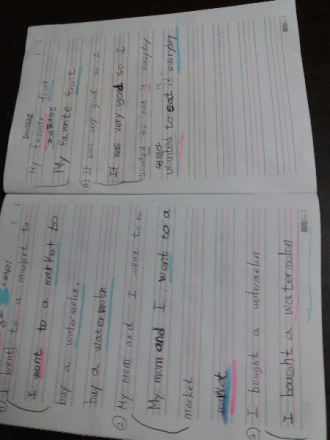 My favorite fruit
My favorite fruit
① I went to a market to
I went to a market to
buy a watermelon.
buy a watermelon
② My mom and I went to a
My mom and I went to a
market
market
③ I bought a watermelon
I bought a watermelon
④ It was very good so I
It was very good so I
wanted to eat it everyday
wanted to eat it everyday